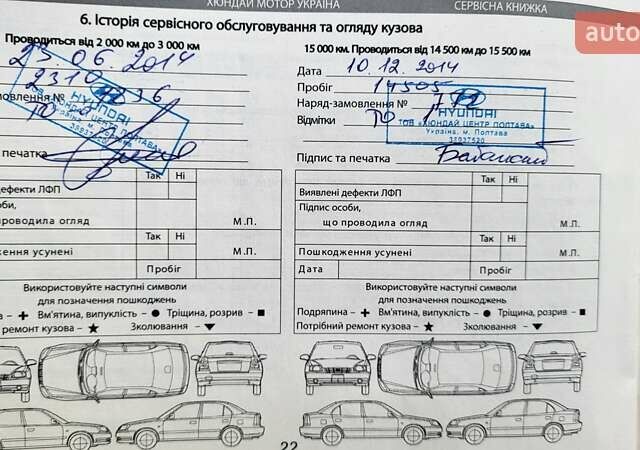 ХЮНДАЙ МОТОР УКРАЇНА
СЕРВІСНА КНИЖКА
auto
6. Історія сервісного обслуговування та огляду кузова
Проводиться від 2 000 км до 3 000 км
23.06.2014
2310
мовлення №
236
ТО
HYUNDAI
ТОВ «ХЮНДАЙ ЦЕНТР ПОЛТАВА»
Україна, м. Полтава
35937520
печатка
Так Ні
дефекти ЛФП
оби,
роводила огляд М.П.
Так Ні
кодження усунені
Пробіг
Використовуйте наступні символи
для позначення пошкоджень
на - + Вм'ятина, випуклість - ● Тріщина, розрив - ■
ремонт кузова - ★ Зколювання - ▼
15 000 км. Проводиться від 14 500 км до 15 500 км
Дата 10.12.2014
Пробіг 14505
Наряд-замовлення №
Відмітки ТО 1
HYUNDAI
ТОВ «ХЮНДАЙ ЦЕНТР ПОЛТАВА»
Україна, м. Полтава
35937520
Підпис та печатка
Так Ні
Виявлені дефекти ЛФП
Підпис особи,
що проводила огляд М.П.
Так Ні
Пошкодження усунені
Дата Пробіг
Використовуйте наступні символи
для позначення пошкоджень
Подряпина - + Вм'ятина, випуклість - ● Тріщина, розрив - ■
Потрібний ремонт кузова - ★ Зколювання - ▼
22